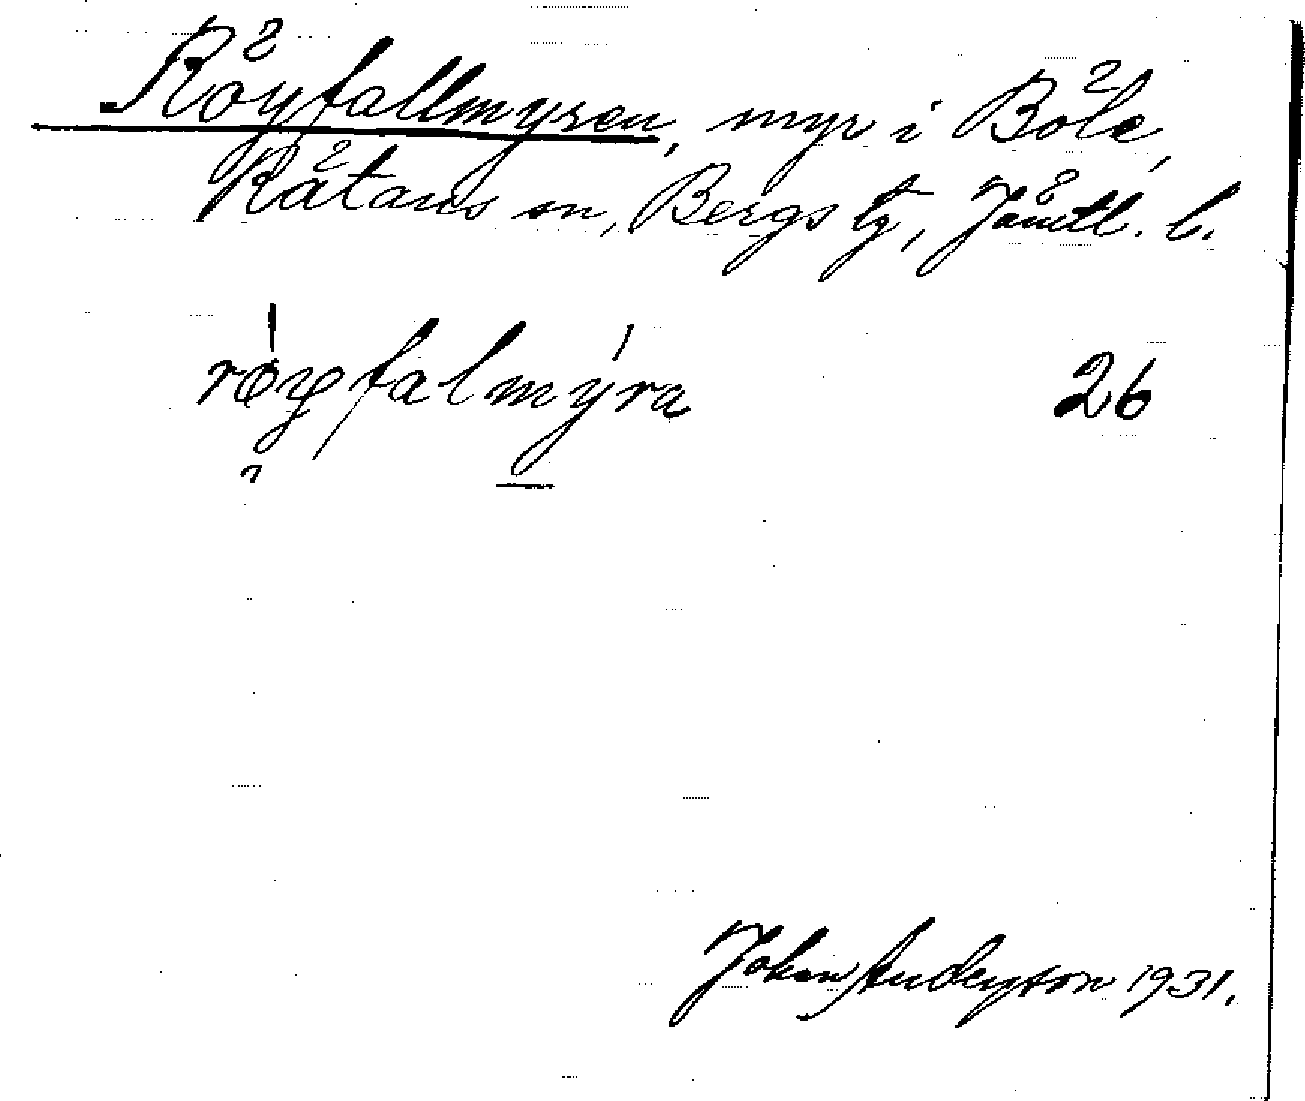 Röyfallmyren, myr i Böle,
Rätans sn, Bergs tg, Jämtl. l.
røyfalmýra 26
Johan Anderson 1931.